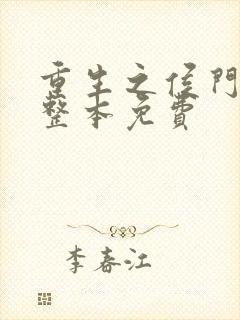 重生之侯門
整本免費
李春江